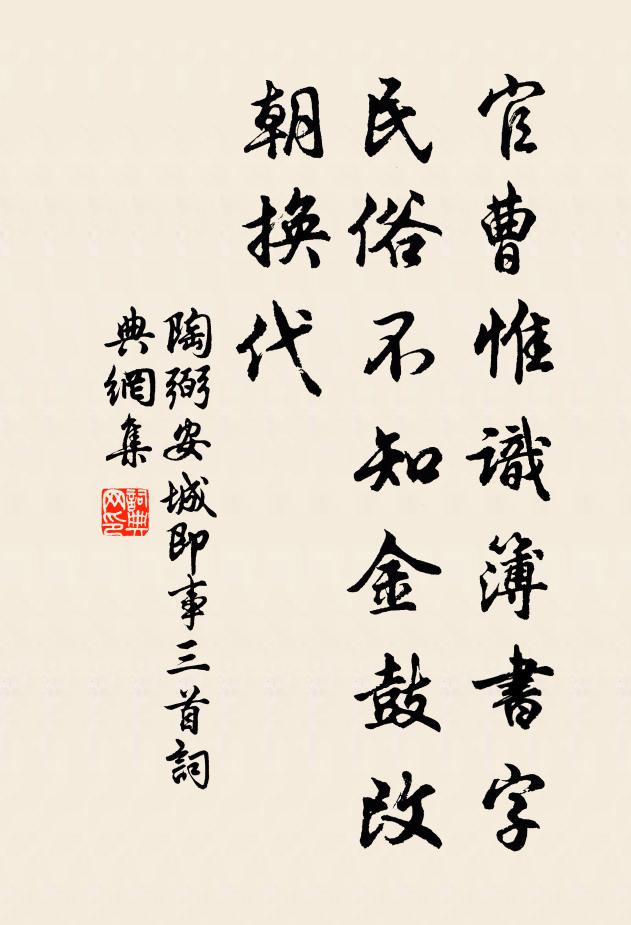 官曹惟識簿書字
民俗不知金鼓改
朝換代
陶弼安城即事三首詞
典網集
詞典
网印